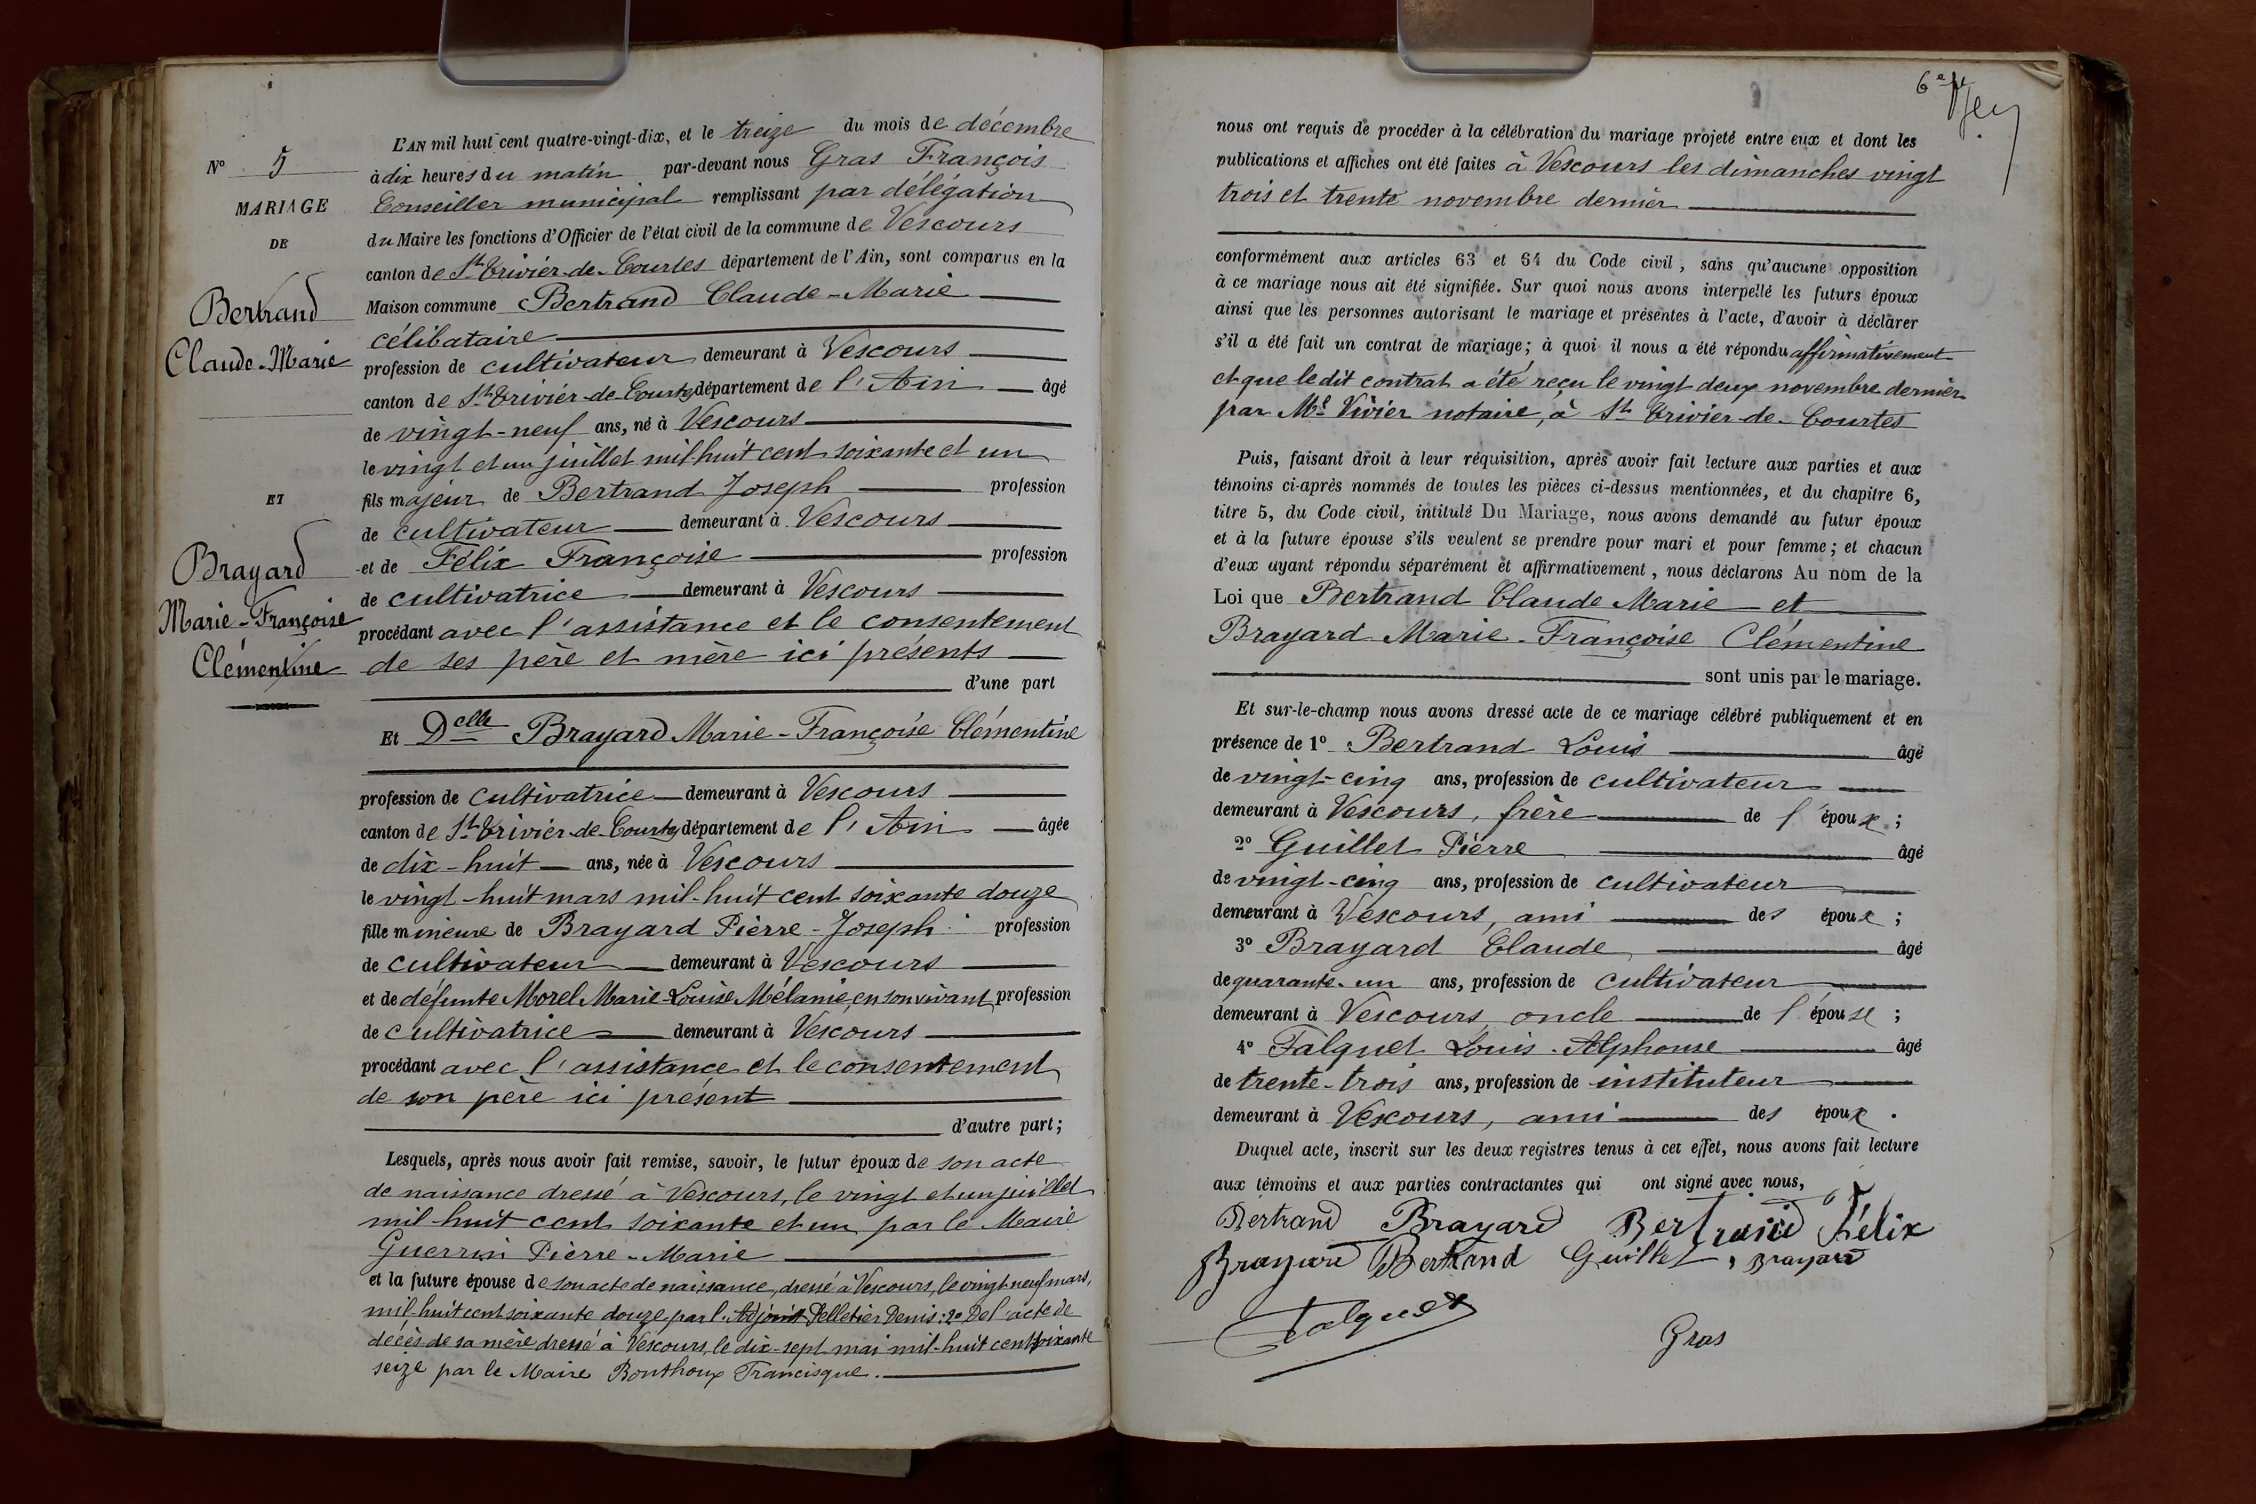 N° 5
MARIAGE
DE
Bertrand
Claude-Marie
ET
Brayard
Marie-Françoise
Clémentine
L'AN mil huit cent quatre-vingt-dix, et le treize du mois de décembre
à dix heures du matin par-devant nous Gras François
Conseiller municipal remplissant par délégation
du Maire les fonctions d'Officier de l'état civil de la commune de Vescours
canton de St Trivier-de-Courtes département de l'Ain, sont comparus en la
Maison commune Bertrand Claude-Marie
célibataire
profession de cultivateur demeurant à Vescours
canton de St Trivier-de-Courtes département de l'Ain âgé
de vingt-neuf ans, né à Vescours
le vingt et un juillet mil huit cent soixante et un
fils majeur de Bertrand Joseph profession
de cultivateur demeurant à Vescours
et de Félix Françoise profession
de cultivatrice demeurant à Vescours
procédant avec l'assistance et le consentement
de ses père et mère ici présents
d'une part
Et Delle Brayard Marie-Françoise Clémentine
profession de cultivatrice demeurant à Vescours
canton de St Trivier-de-Courtes département de l'Ain âgée
de dix-huit ans, née à Vescours
le vingt-huit mars mil-huit cent soixante douze
fille mineure de Brayard Pierre-Joseph profession
de cultivateur demeurant à Vescours
et de défunte Morel Marie-Louise Mélanie, en son vivant profession
de cultivatrice demeurant à Vescours
procédant avec l'assistance et le consentement
de son père ici présent
d'autre part;
Lesquels, après nous avoir fait remise, savoir, le futur époux de son acte
de naissance dressé à Vescours, le vingt et un juillet
mil-huit cent soixante et un par le Maire
Guerrin Pierre-Marie
et la future épouse de son acte de naissance, dressé à Vescours, le vingt neuf mars,
mil huit cent soixante douze par l'Adjoint Pelletier Denis; 2° De l'acte de
décès de sa mère dressé à Vescours, le dix-sept mai mil-huit cent soixante
seize par le Maire Bonthoux Francisque.
6e ft
nous ont requis de procéder à la célébration du mariage projeté entre eux et dont les
publications et affiches ont été faites à Vescours les dimanches vingt
trois et trente novembre dernier
conformément aux articles 63 et 64 du Code civil, sans qu'aucune opposition
à ce mariage nous ait été signifiée. Sur quoi nous avons interpellé les futurs époux
ainsi que les personnes autorisant le mariage et présentes à l'acte, d'avoir à déclarer
s'il a été fait un contrat de mariage; à quoi il nous a été répondu affirmativement
et que le dit contrat a été reçu le vingt deux novembre dernier
par Me Vivier notaire, à St Trivier-de-Courtes
Puis, faisant droit à leur réquisition, après avoir fait lecture aux parties et aux
témoins ci-après nommés de toutes les pièces ci-dessus mentionnées, et du chapitre 6,
titre 5, du Code civil, intitulé Du Mariage, nous avons demandé au futur époux
et à la future épouse s'ils veulent se prendre pour mari et pour femme; et chacun
d'eux ayant répondu séparément et affirmativement, nous déclarons Au nom de la
Loi que Bertrand Claude Marie et
Brayard Marie-Françoise Clémentine
sont unis par le mariage.
Et sur-le-champ nous avons dressé acte de ce mariage célébré publiquement et en
présence de 1° Bertrand Louis âgé
de vingt-cinq ans, profession de cultivateur
demeurant à Vescours, frère de l'époux;
2° Guillet Pierre âgé
de vingt-cinq ans, profession de cultivateur
demeurant à Vescours, ami des époux;
3° Brayard Claude âgé
de quarante-un ans, profession de cultivateur
demeurant à Vescours, oncle de l'épouse;
4° Falquet Louis-Alphonse âgé
de trente-trois ans, profession de instituteur
demeurant à Vescours, ami des époux.
Duquel acte, inscrit sur les deux registres tenus à cet effet, nous avons fait lecture
aux témoins et aux parties contractantes qui ont signé avec nous,
Bertrand Brayard Bertrand Félix
Brayard Bertrand Guillet, Brayard
Falquet
Gras